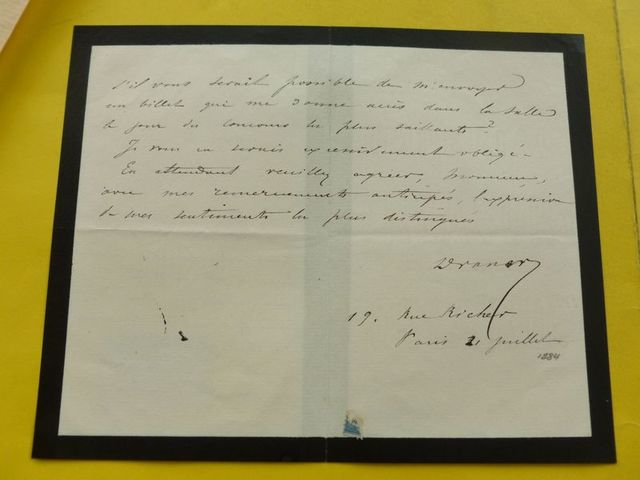 s'il vous serait possible de m'envoyer
un billet qui me donne accès dans la salle
le jour du concours les plus saillants?
Je vous en serais extrêmement obligé-
En attendant veuillez agréer, Monsieur,
avec mes remerciements anticipés, l'expression
de mes sentiments les plus distingués
Draner
19. Rue Richer
Paris 21 juillet
1884